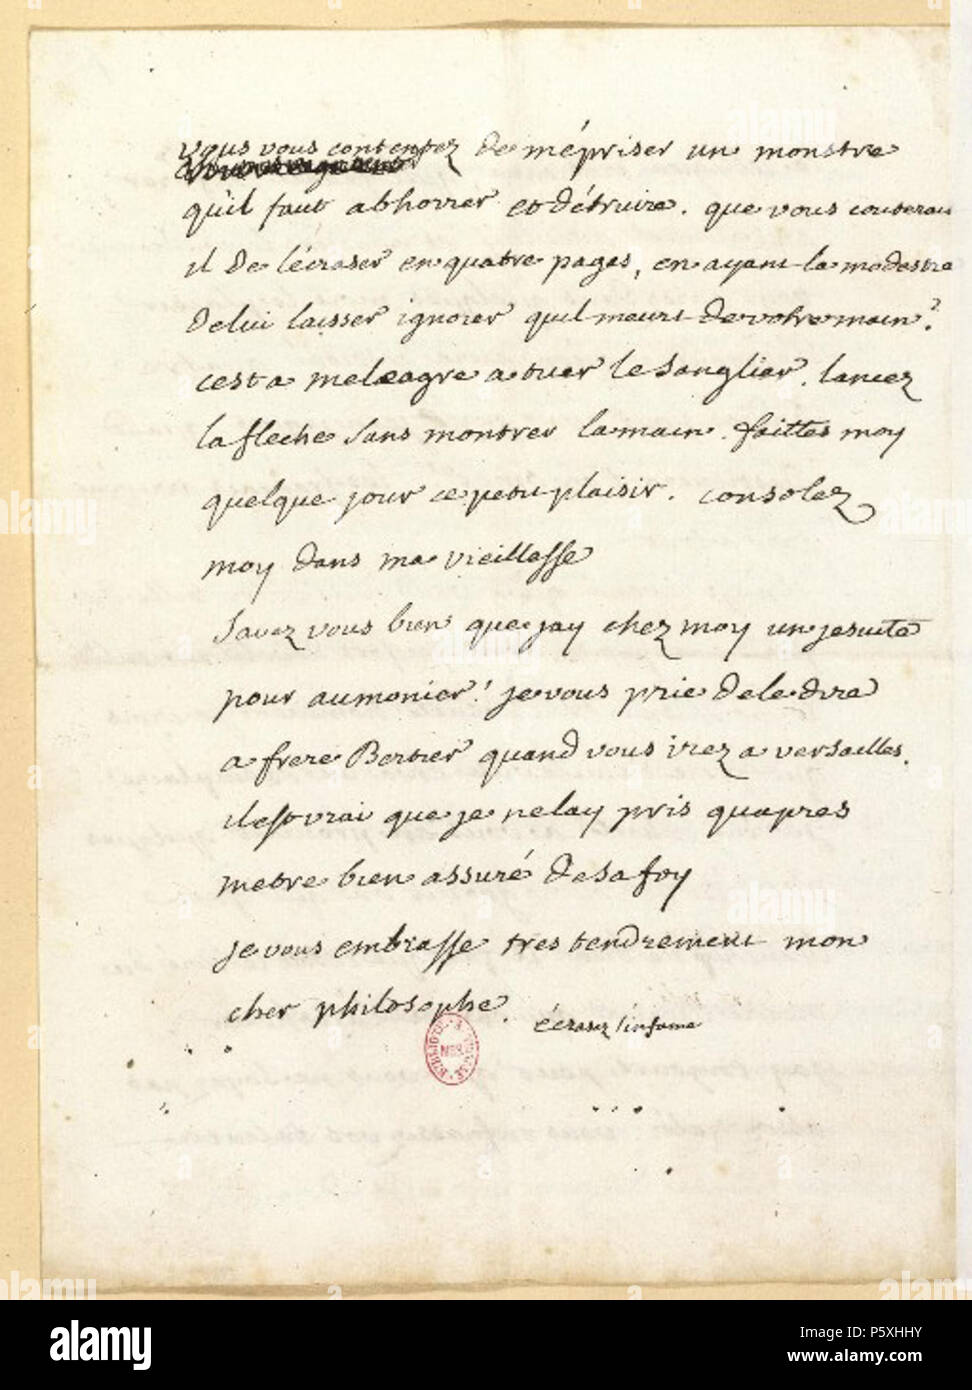 vous vous contentez de mépriser un monstre
qu'il faut abhorrer et détruire. que vous couterait
il de lécraser en quatre pages, en ayant la modestie
de lui laisser ignorer quil meurt de votre main?
cest a meleagre a tuer le sanglier. lancez
la fleche sans montrer la main. faittes moy
quelque jour ce petit plaisir. consolez
moy dans ma vieillesse
Savez vous bien que jay chez moy un jesuite
pour aumonier! je vous prie de le dire
a frere Bertier quand vous irez a versailles.
il est vrai que je ne lay pris quapres
metre bien assuré de sa foy
je vous embrasse tres tendrement mon
cher philosophe.
écrasez l'infame
alamy
Image ID: P5XHHY
www.alamy.com